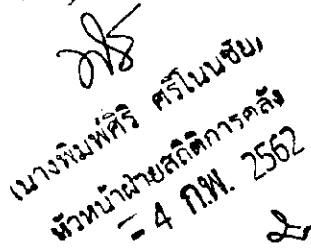 (นางพิมพ์ศิริ ศรีโนนชัย)
หัวหน้าฝ่ายสถิติการคลัง
- 4 ก.พ. 2562